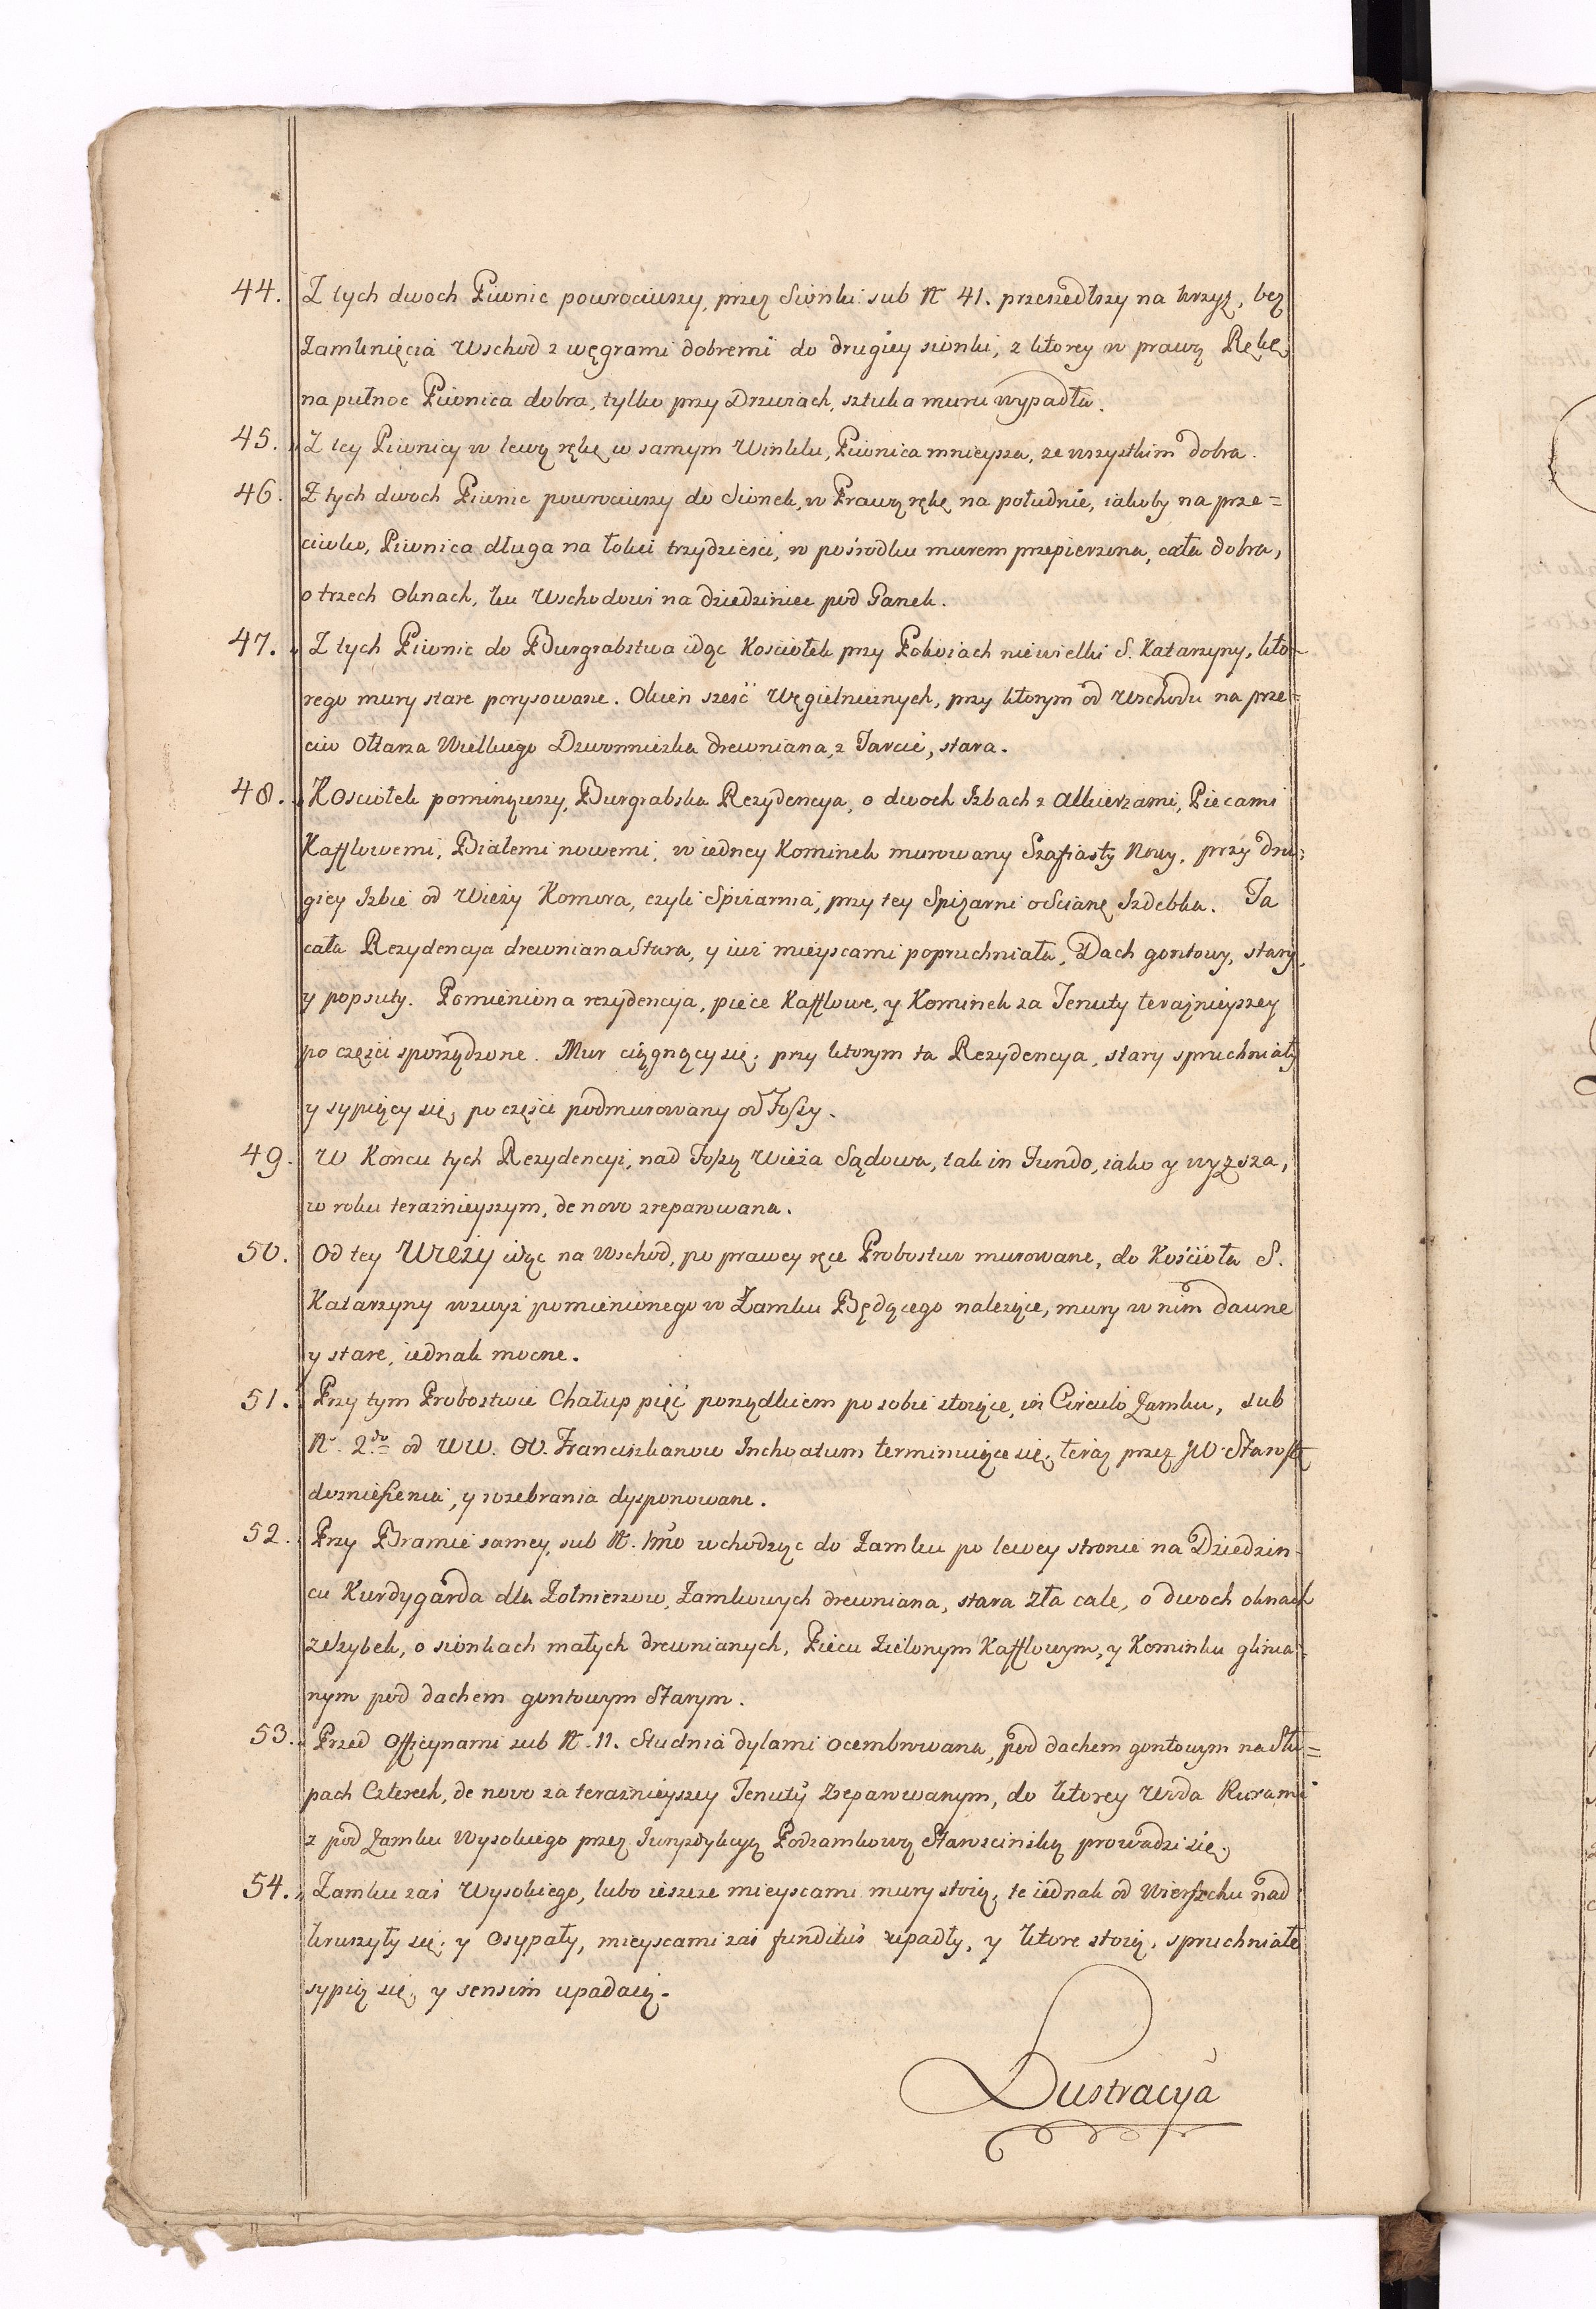 44. Z tych dwoch Piwnic powrociwszy, przez Sionki sub N 41. przeszedłszy na krzyż, bez
Zamknięcia Wschod z węgrami dobremi do drugiey sionki, z ktorey w prawą Rękę
na pułnoc Piwnica dobra, tylko przy Drzwiach, sztuka muru wypadła.
45. Z tey Piwnicy w lewą rękę w samym Winklu, Piwnica mnieysza, ze wszystkim dobra.
46. Z tych dwoch Piwnic powrociwszy do Sionek, w Prawą rękę na południe, iakoby na prze=
ciwko, Piwnica długa na łokci trzydzieści, w pośrodku murem przepierzona, cała dobra,
o trzech Oknach, ku Wschodowi na dziedziniec pod Ganek.
47. Z tych Piwnic do Burgrabstwa idąc Kosciołek przy Pokoiach niewielki S. Katarzyny, kto-
rego mury stare porysowane. Okien sześć Węgielnicznych, przy ktorym od Wschodu na prze=
ciw Ołtarza Wielkiego Dzwonniczka drewniana, z Tarcic, stara.
48. Kosciołek pominąwszy, Burgrabska Rezydencya, o dwoch Izbach z Alkierzami, Piecami
Kafflowemi, Białemi nowemi, w iedney Kominek murowany Szafiasty Nowy, przy dru=
giey Izbie od Wieży Komora, czyli Spiżarnia, przy tey Spiżarni o Scianę Izdebka. Ta
cała Rezydencya drewniana Stara, y iuż mieyscami popruchniała, Dach gontowy, stary,
y popsuty. Pomieniona rezydencya, piece Kafflowe, y Kominek za Tenuty teraznieyszey
po części sporządzone. Mur ciągnący się, przy ktorym ta Rezydencya, stary spruchniały
y sypiący się, po części podmurowany od Fossy.
49. W Koncu tych Rezydencyi, nad Fossą Wieża Sądowa, tak in Fundo, iako y wyższa,
w roku teraznieyszym, de novo zreparowana.
50. Od tey Wieży idąc na Wschod, po prawey ręce Probostwo murowane, do Kościoła S.
Katarzyny wzwyż pomienionego w Zamku Będącego należące, mury w nim dawne
y stare, iednak mocne.
51. Przy tym Probostwie Chałup pięć porządkiem po sobie stoiące, in Circulo Zamku, sub
N. 2do od WW. OO. Franciszkanow Inchoatum terminuiące się, teraz przez JW. Starostę
do zniesienia, y rozebrania dysponowane.
52. Przy Bramie samey, sub N. 1mo wchodząc do Zamku po lewey stronie na Dziedzin-
cu Kurdygarda dla Zołnierzow, Zamkowych drewniana, stara zła cale, o dwoch oknach
ze szybek, o sionkach małych drewnianych, Piecu Zielonym Kafflowym, y Kominku glinia-
nym pod dachem gontowym Starym.
53. Przed Officynami sub N. 11. Studnia dylami ocembrowana, pod dachem gontowym na Słu=
pach Czterech, de novo za teraznieyszey Tenuty zreparowanym, do ktorey Woda Rurami
z pod Zamku Wysokiego przez Iuryzdykcyą Podzamkową Starościńską prowadzi się.
54. Zamku zaś Wysokiego, lubo ieszcze mieyscami mury stoią, te iednak od Wierszchu nad
kruszyły się, y Osypały, mieyscami zaś funditus upadły, y ktore stoią, spruchniałe
sypią się, y sensim upadaią.
Lustracya